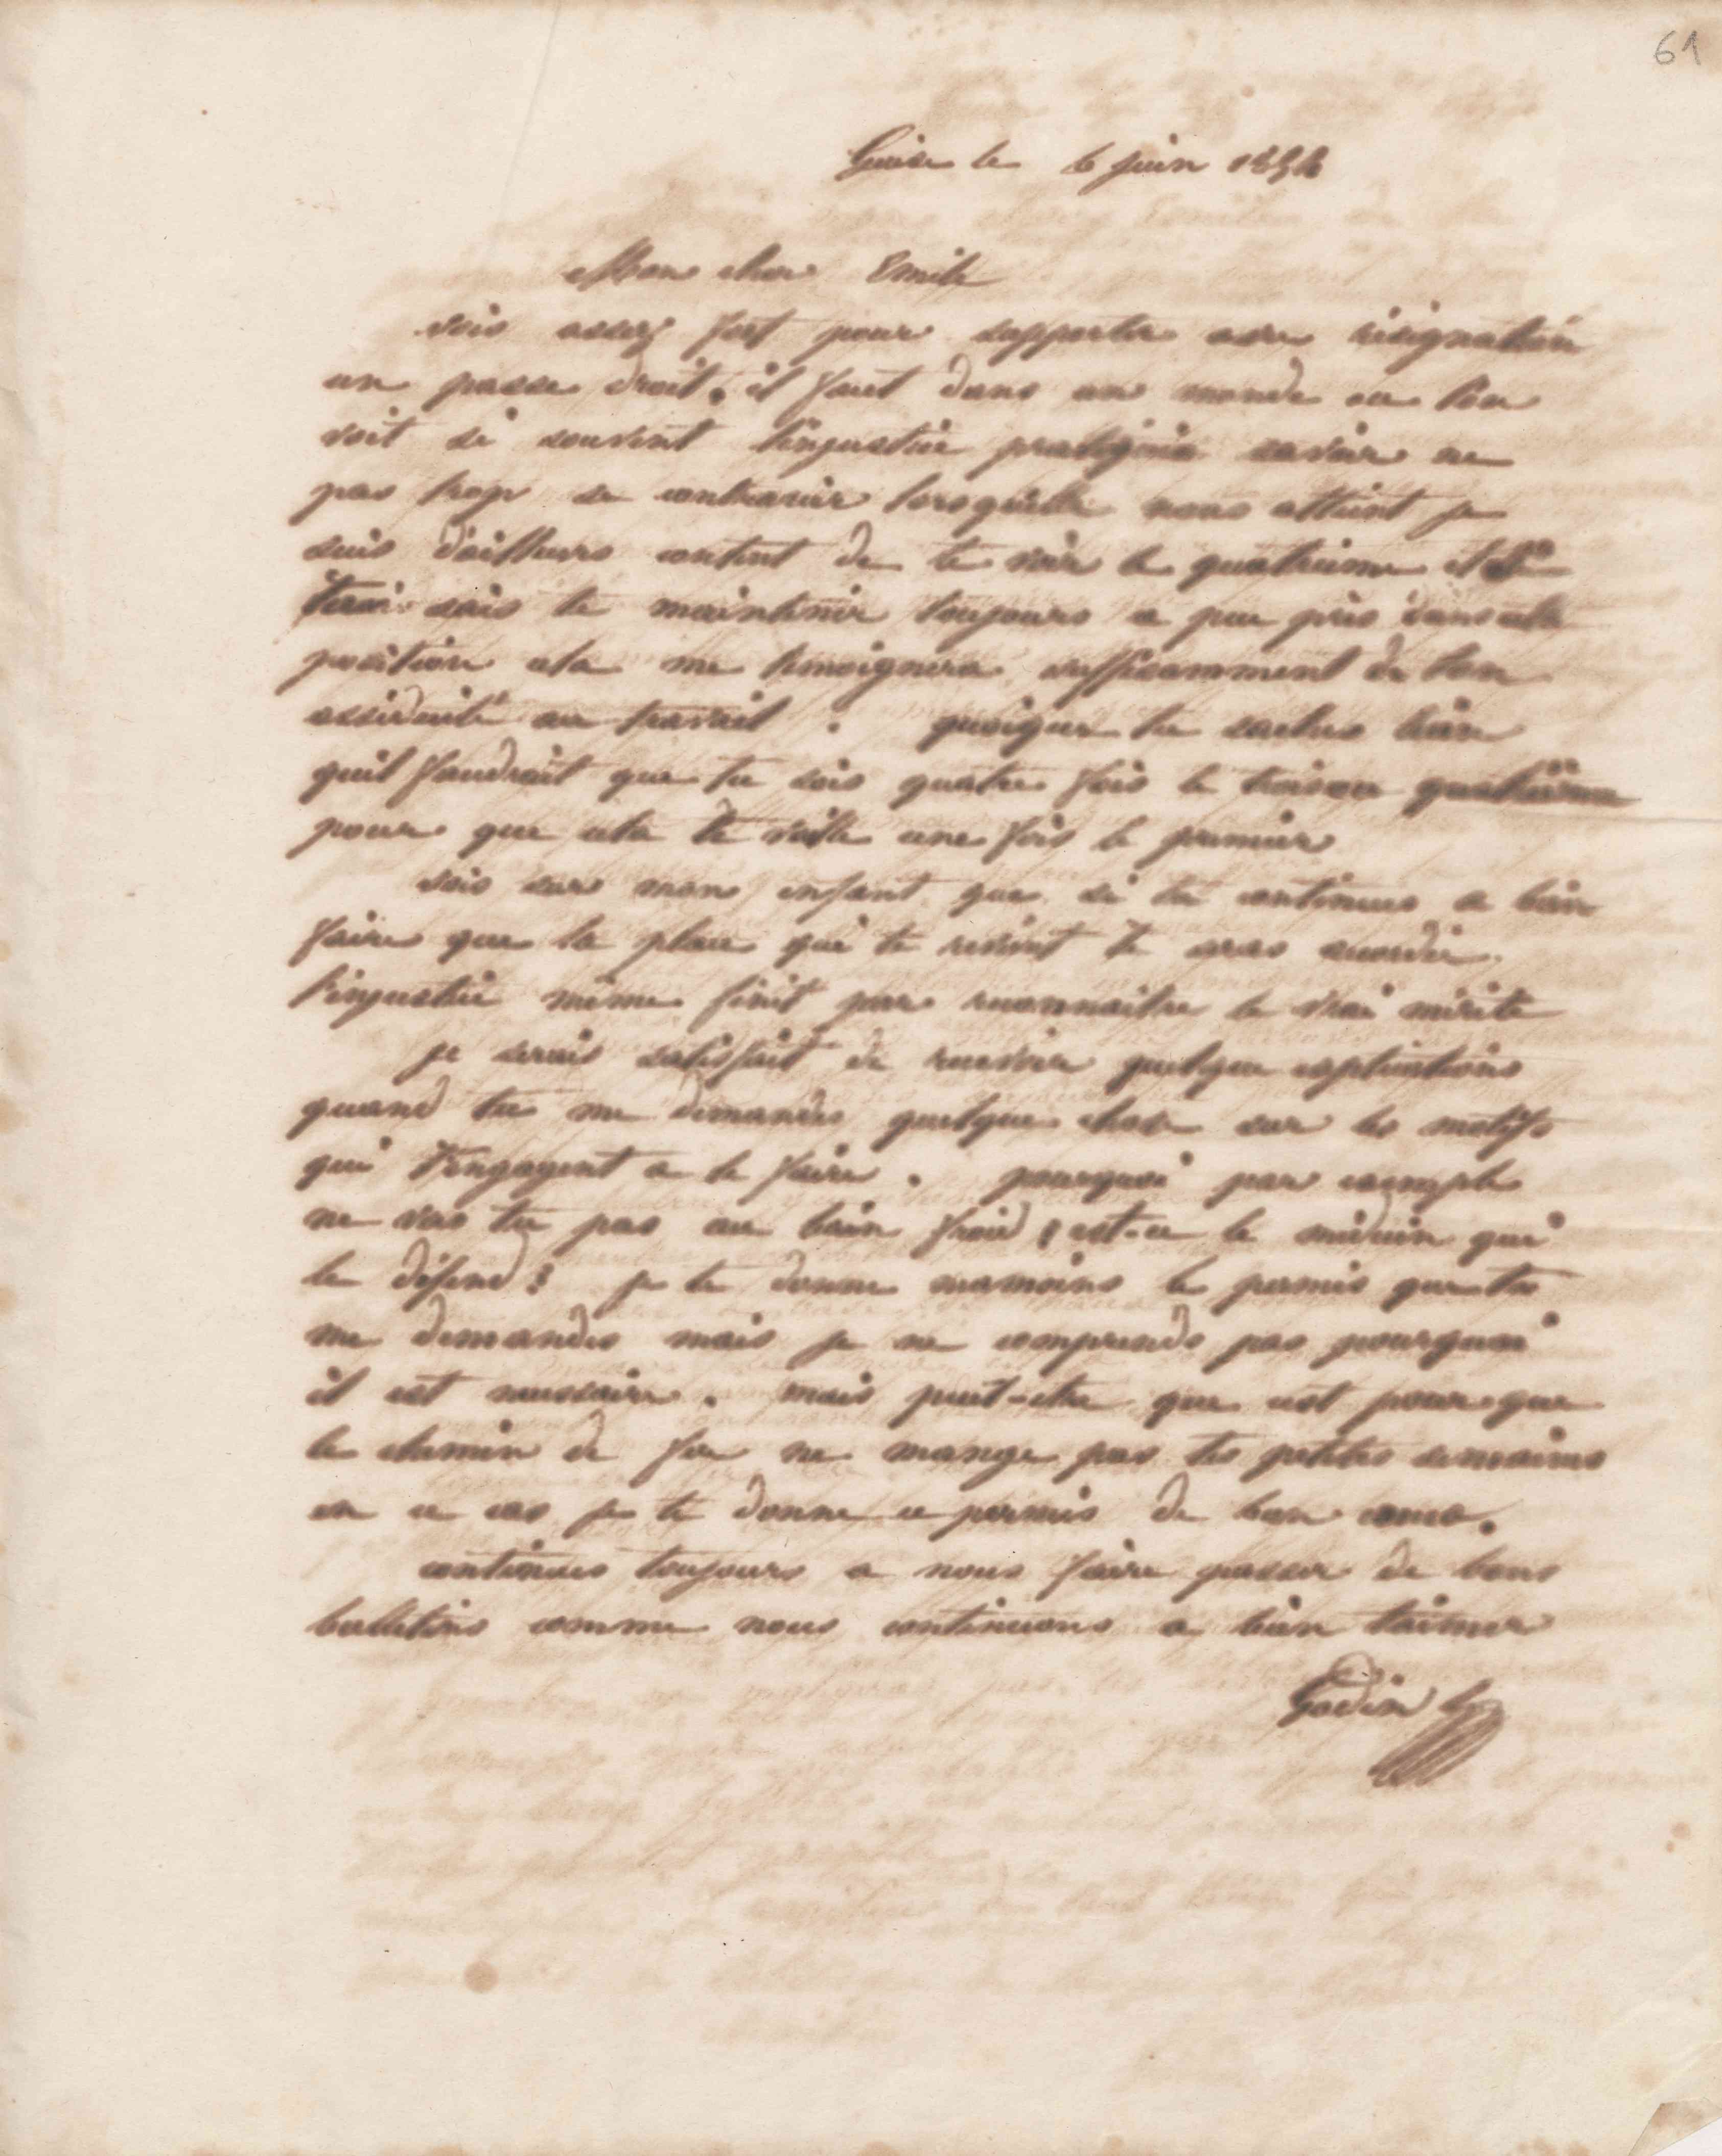 61
Guise le 6 juin 1854
Mon cher Emile
sois assez fort pour supporter avec résignation
un passe droit. il faut dans un monde ou l'on
voit si souvent l'injustice pratiquée savoir ne
pas trop se contrarier lorsqu'elle nous atteint je
suis d'ailleurs content de te voir le quatrieme et
sais te maintenir toujours a peu près dans cette
position cela me temoignera suffisamment de ton
assiduité au travail . quoique tu saches bien
quil faudrait que tu sois quatre fois le trois ou quatrième
pour que cela te vaille une fois le premier
sois sur mon enfant que si tu continues a bien
faire que la place qui te revient te sera accordée.
l'injustice même finit par reconnaitre le vrai mérite
je serais satisfait de recevoir quelque explications
quand tu me demandes quelque chose sur les motifs
qui t'engagent a le faire . pourquoi par exemple
ne vas tu pas au bain froid , est-ce le médecin qui
le défend ? je te donne néanmoins le permis que tu
me demandes mais je ne comprends pas pourquoi
il est necessaire . mais peut-etre que cest pour que
le chemin de fer ne mange pas tes petites semaines
en ce cas je te donne ce permis de bon coeur.
continues toujours a nous faire passer de bons
bulletins comme nous continuons a bien taimer
Godin